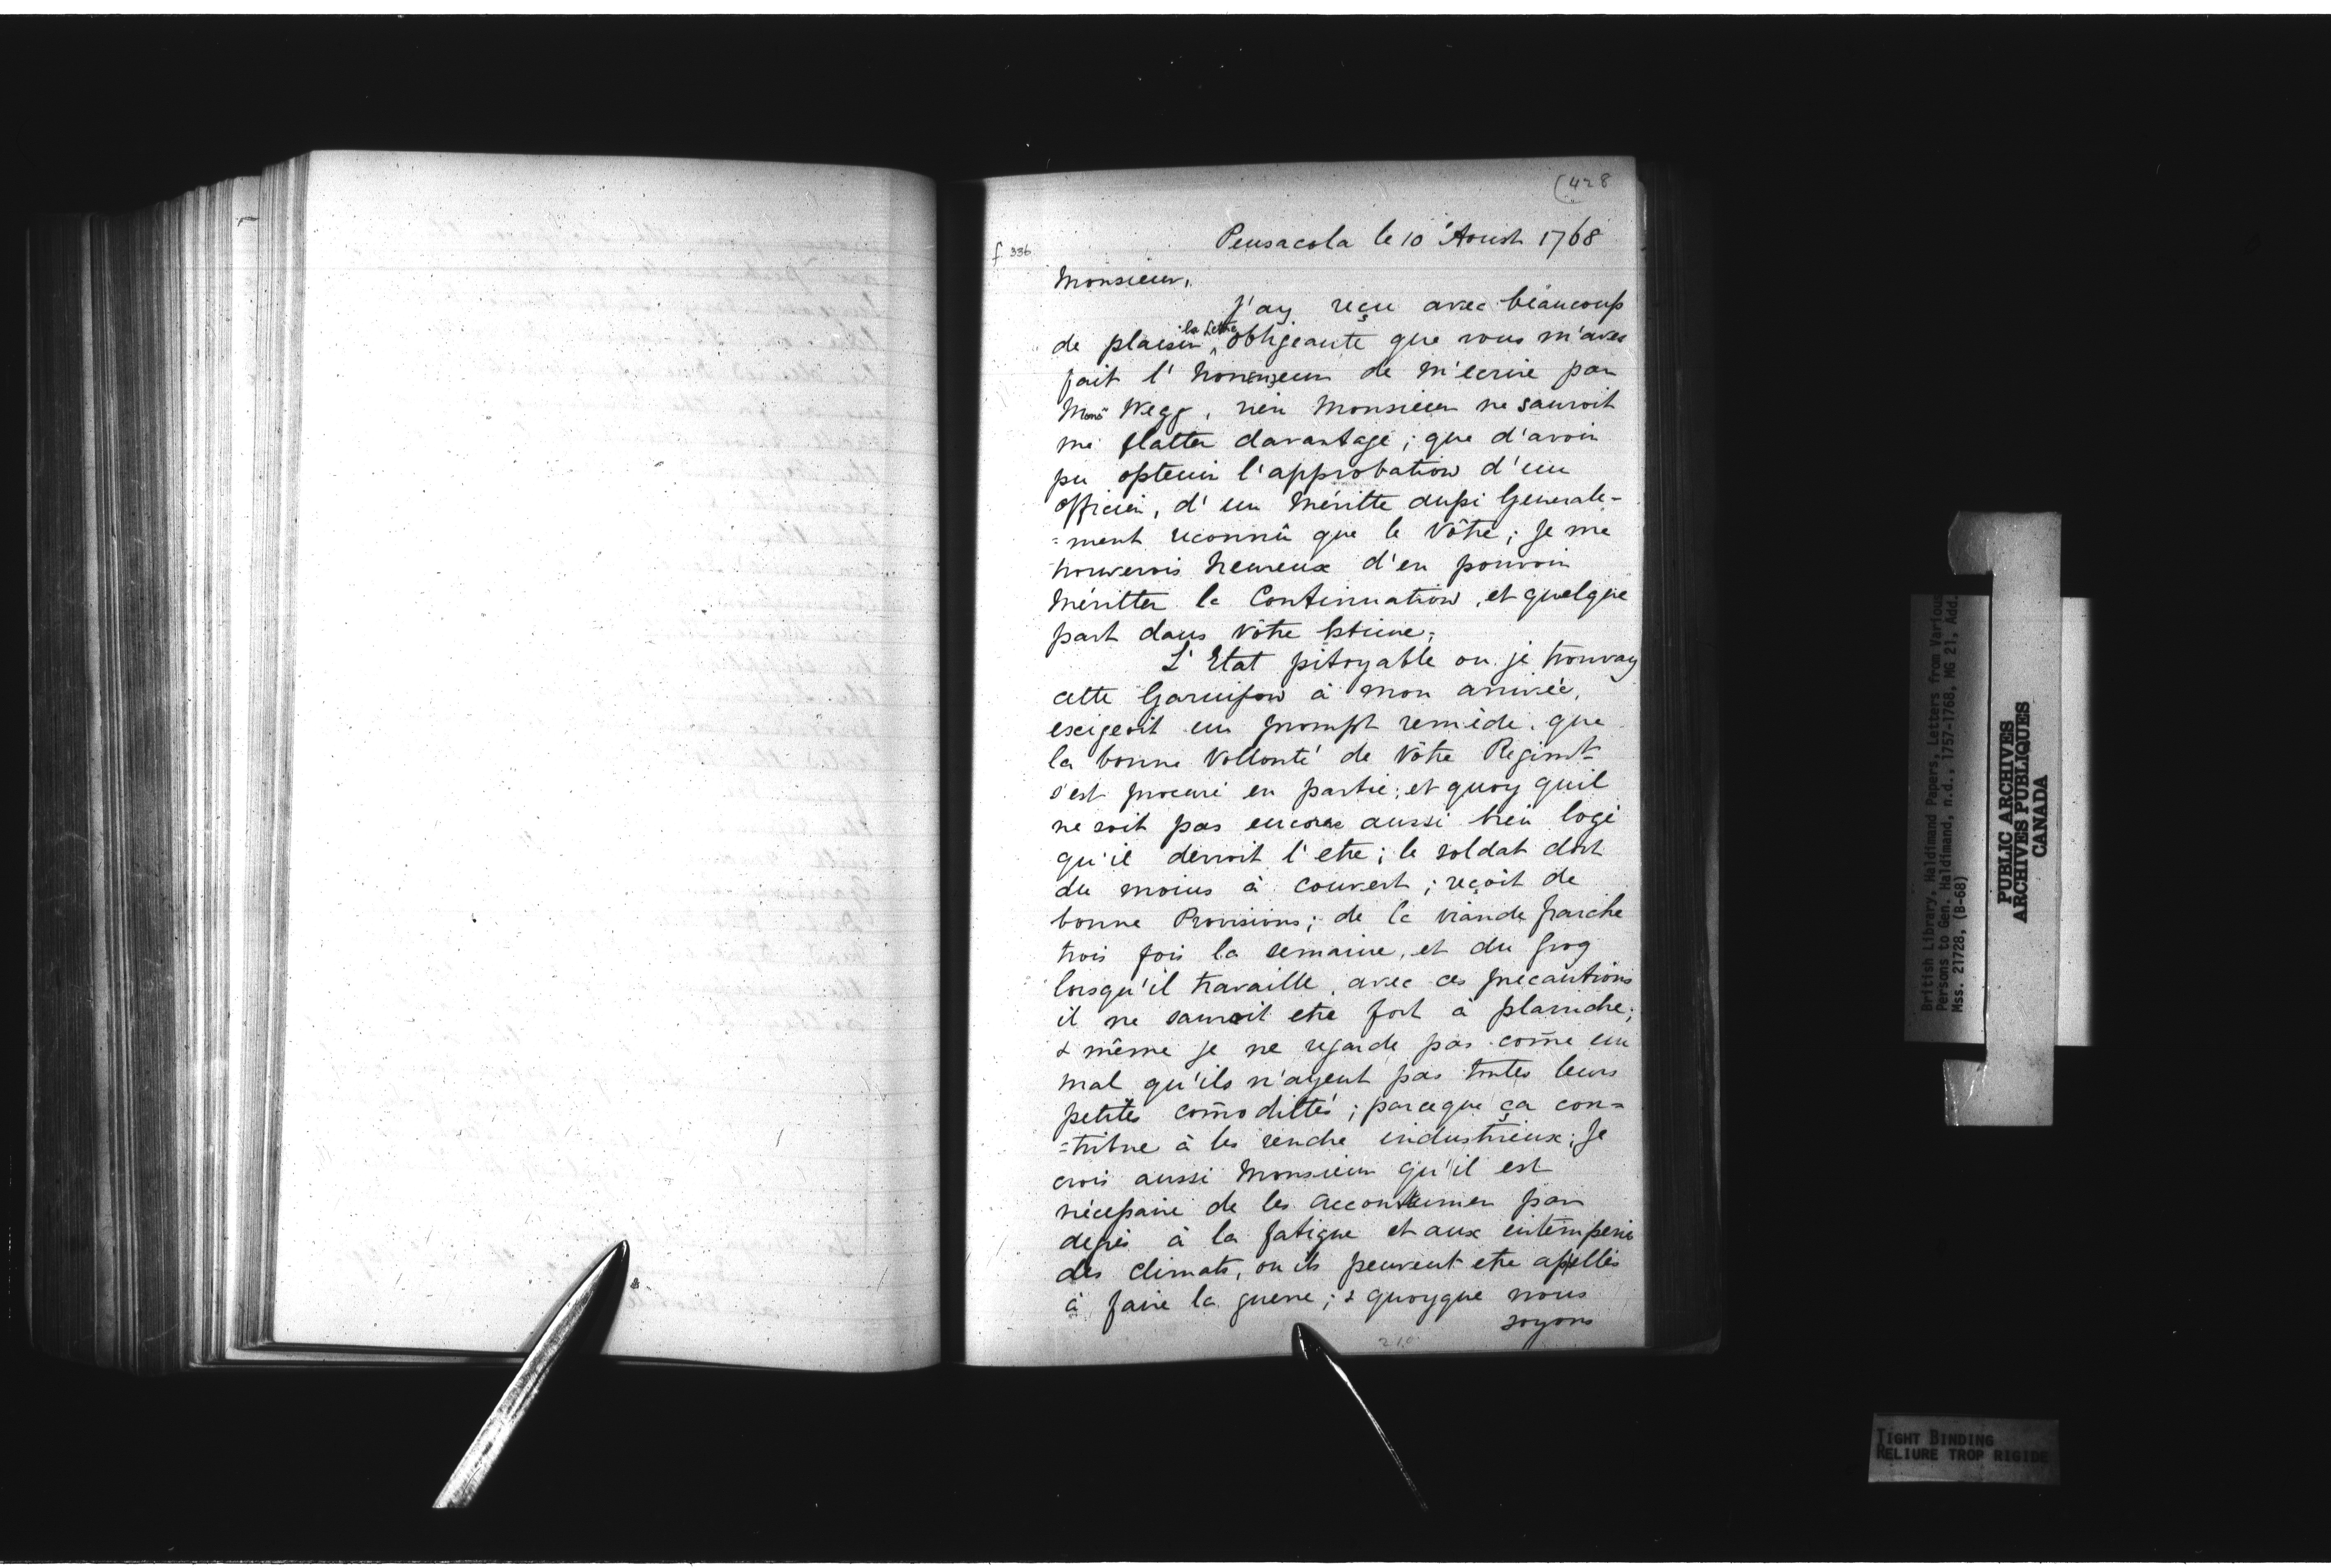 (428
f 336
Pensacola le 10 Aoust 1768
Monsieur,
J'ay reçu avec beaucoup
de plaisir la Lettre obligeante que vous m'aves
fait l'honneur de m'ecrire par
Monsr Wegg, rien Monsieur ne sauroit
me flatter davantage; que d'avoir
pu optenir l'approbation d'un
officier, d'un Méritte aussi Generale-
=ment reconnû que le Vôtre; Je me
trouverois heureux d'en pouvoir
Méritter la Continuation, et quelque
part dans Vôtre Estime;
L'Etat pitoyable ou je trouvay
cette Garnison à mon arrivée,
exigeoit un prompt remède, que
la bonne Vollonté de Vôtre Regimt
s'est procuré en partie; et quoy quil
ne soit pas encore aussi bien logé
qu'il devroit l'etre; le soldat dort
du moins à couvert; reçoit de
bonne Provisions; de la viande fraiche
trois fois la semaine, et du grog
lorsqu'il travaille, avec ces précautions
il ne sauroit etre fort à plaindre;
& même je ne regarde pas com̄e un
mal qu'ils n'ayent pas toutes leurs
petites com̄odittés; parceque ça con=
=tribue à les rendre industrieux; Je
crois aussi Monsieur qu'il est
nécessaire de les accoutumer par
degrés à la fatigue et aux intemperie
des climats, ou ils peuvent etre apellés
à faire la guerre; & quoyque nous
soyons
210
British Library, Haldimand Papers, Letters from Various
Persons to Gen. Haldimand, n.d., 1757-1768, MG 21, Add.
Mss. 21728, (B-68)
PUBLIC ARCHIVES
ARCHIVES PUBLIQUES
CANADA
TIGHT BINDING
RELIURE TROP RIGIDE